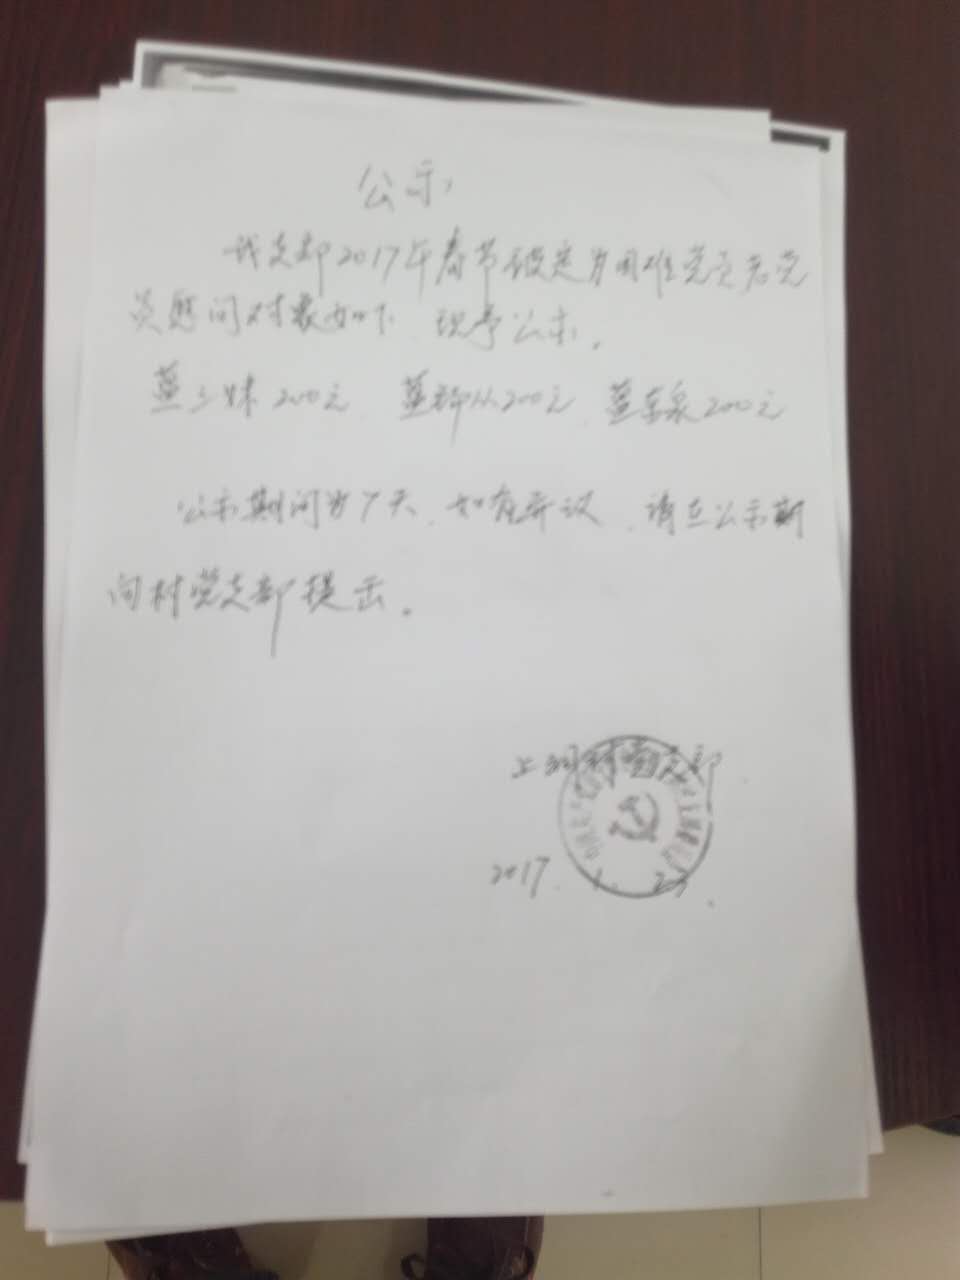 公示
我支部2017年春节拟定为困难党员老党
员慰问对象如下 现予公示。
蓝三妹200元 蓝 200元 蓝 泉200元
公示期间为7天,如有异议,请在公示期
向村党支部提出。
上 村党支部
2017. 1. 23.